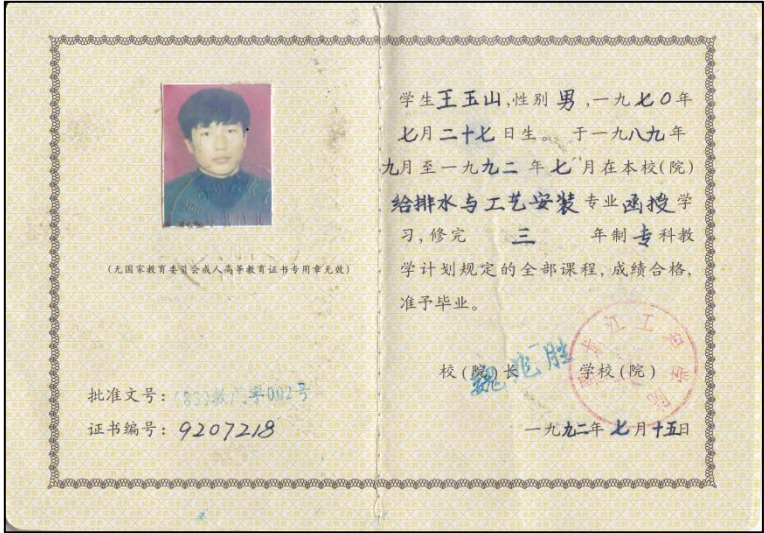 (无国家教育委员会成人高等教育证书专用章无效)
批准文号:(83)教 字002号
证书编号:9207218
学生王玉山,性别男,一九七〇年
七月二十七日生。于一九八九年
九月至一九九二年七月在本校(院)
给排水与工艺安装专业函授学
习,修完 三 年制专科教
学计划规定的全部课程,成绩合格,
准予毕业。
校(院)长 魏兆胜 学校(院)
江工
学院
一九九二年七月十五日